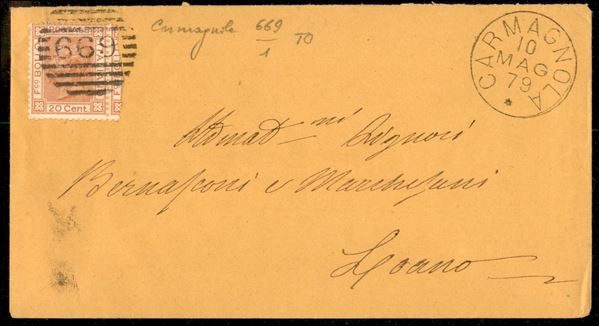 Carmagnola 669/1 TO
669
Fco BOLLO
20 Cent.
CARMAGNOLA
10
MAG
79
ni Signori
Bernasconi e Marchesani
Loano